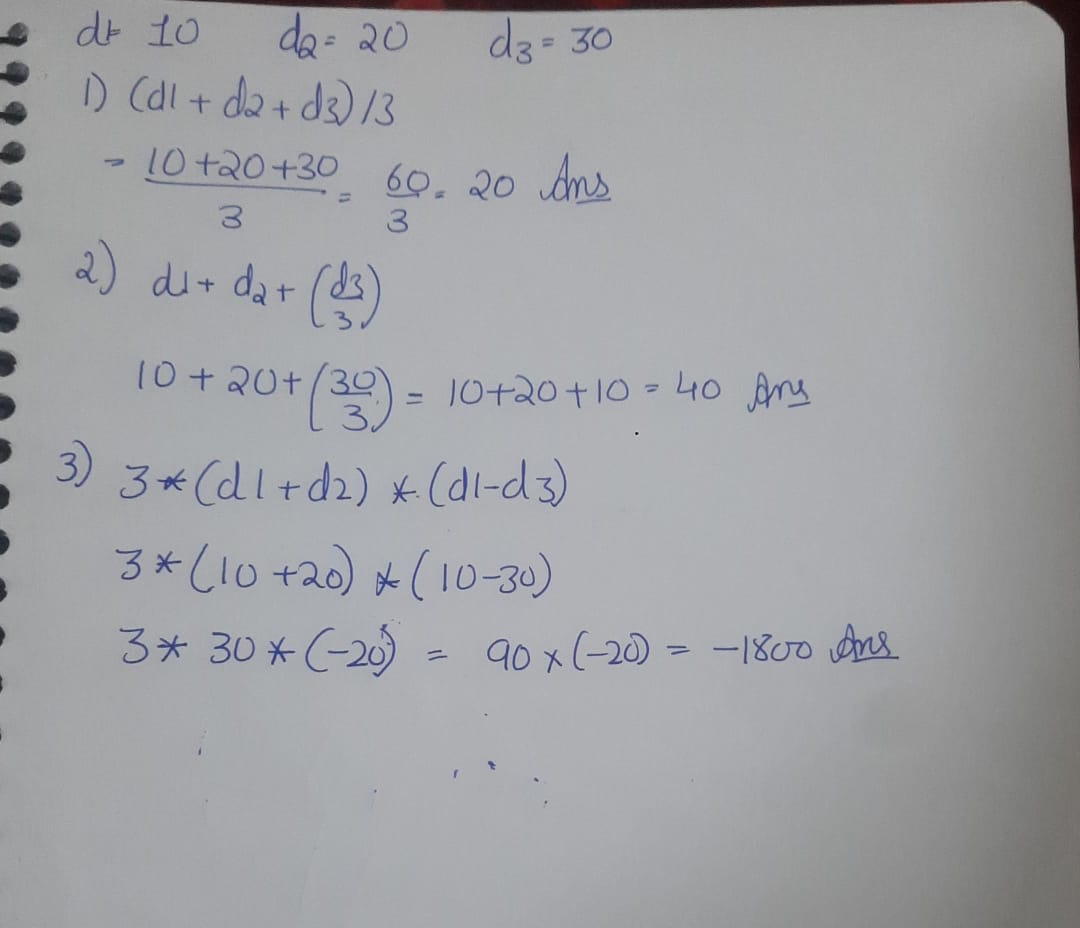 d1= 10 d2= 20 d3= 30
1) (d1 + d2 + d3)/3
= 10+20+30/3 = 60/3 = 20 Ans
2) d1+ d2+ (d3/3)
10 + 20+ (30/3) = 10+20+10 = 40 Ans
3) 3*(d1+d2) * (d1-d3)
3*(10+20) * (10-30)
3* 30 * (-20) = 90 x (-20) = -1800 Ans